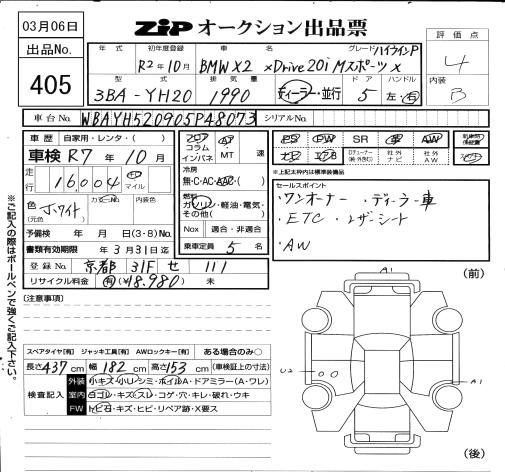 03月06日
ZIP オークション出品票
評価点
4
内装
B
出品No.
405
年式 初年度登録 車名 グレード
R2年10月 BMW X2 xDrive20i Mスポーツ X ハイラインP
型式 排気量 ドア ハンドル
3BA-YH20 1990 ディーラー・並行 5 左・右
車台No. WBAYH520905P48073 シリアルNo.
車歴 自家用・レンタ・( )
車検 R7年10月
走行 16,004 km マイル
色 ホワイト
(元色) カラーNo. 内装色
予備検 年 月 日(3・8)No.
書類有効期限 年3月31日迄
登録No. 京都 31F せ 111
リサイクル料金 有(¥18,980) 未
フロア コラム インパネ AT MT 速
冷房
無・C・AC・AAC・( )
燃料
ガソリン・軽油・電気・その他( )
Nox 適合・非適合
乗車定員 5 名
PS PW SR AW
ナビ AW
※上記太枠内は標準装備品
セールスポイント
・ワンオーナー ・ディーラー車
・ETC ・レザーシート
・AW
※ご記入の際はボールペンで強くご記入下さい。
(注意事項)
スペアタイヤ[有] ジャッキ工具[有] AWロックキー[有] ある場合のみ○
長さ437cm 幅182cm 高さ153cm (車検証上の寸法)
検査記入
外装 小キズ・小リ・シミ・ホイルA・ドアミラー(A・ワレ)
室内 ヨゴレ・キズ・スレ・コゲ・穴・キレ・破れ・ウキ
FW トビ石・キズ・ヒビ・リペア跡・X要ス
(前)
A1
U2
A1
(後)